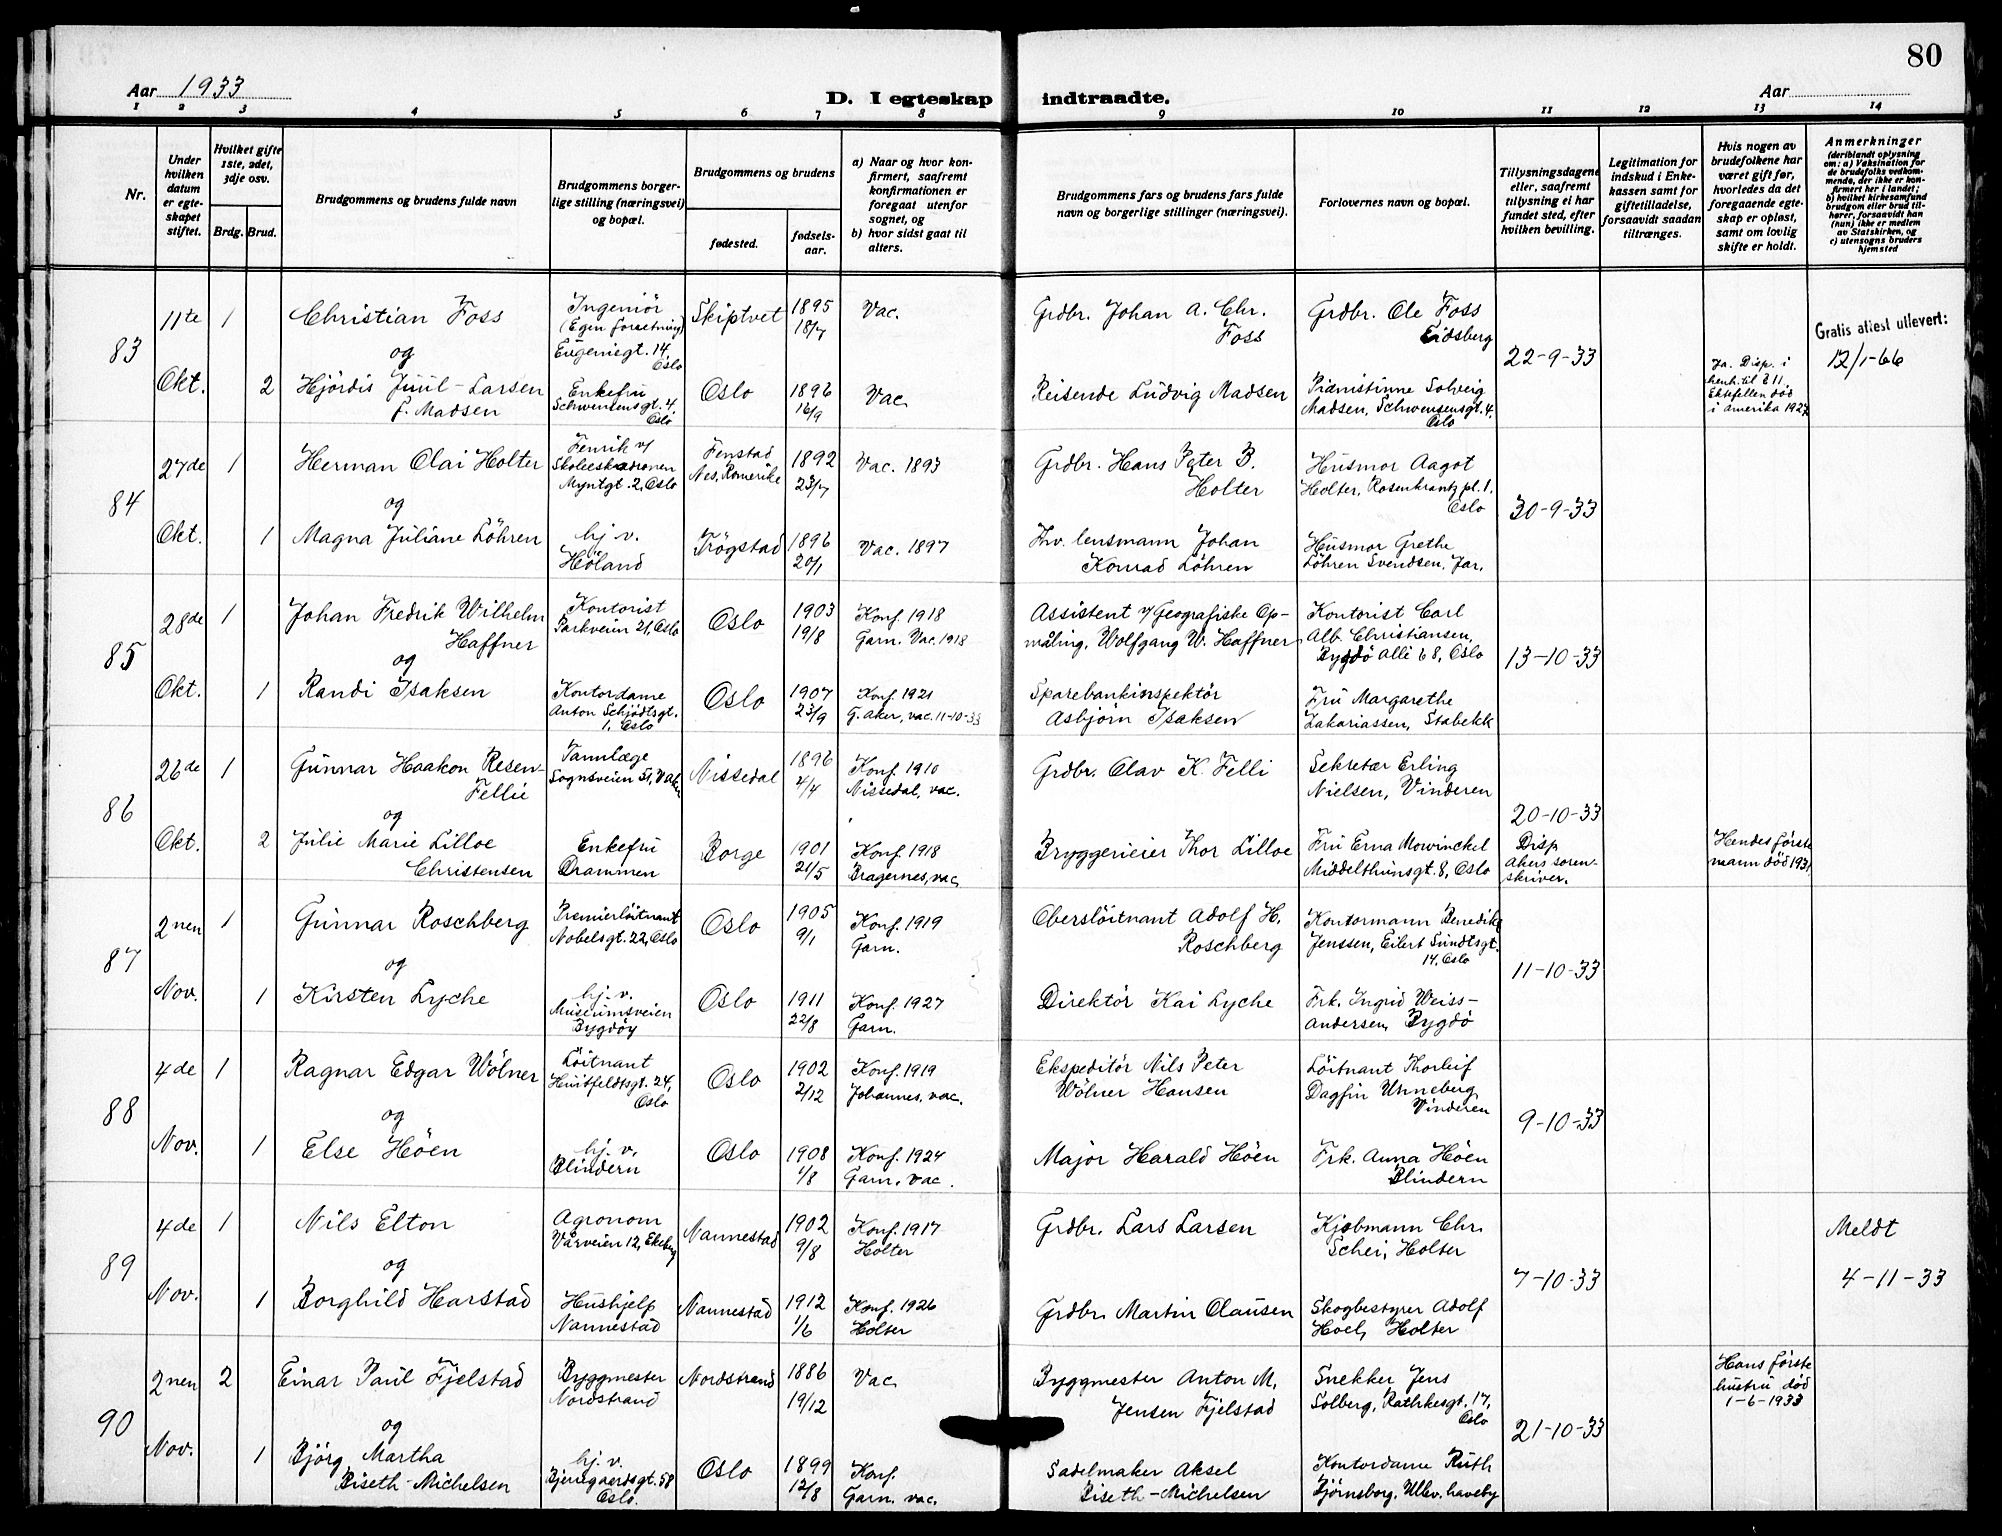 80
Aar 1933
D. I egteskap indtraadte.
Aar
1 2 3 4 5 6 7 8 9 10 11 12 13 14
Nr.
Under hvilken datum er egteskapet stiftet.
Hvilket gifte 1ste, 2det, 3dje osv.
Brdg. Brud.
Brudgommens og brudens fulde navn
Brudgommens borgerlige stilling (næringsvei) og bopæl.
Brudgommens og brudens
fødested.
fødselsaar.
a) Naar og hvor konfirmert, saafremt konfirmationen er foregaat utenfor sognet, og
b) hvor sidst gaat til alters.
Brudgommens fars og brudens fars fulde navn og borgerlige stillinger (næringsvei).
Forlovernes navn og bopæl.
Tillysningsdagene eller, saafremt tillysning ei har fundet sted, efter hvilken bevilling.
Legitimation for indskud i Enkekassen samt for giftetilladelse, forsaavidt saadan tiltrænges.
Hvis nogen av brudefolkene har været gift før, hvorledes da det foregaaende egteskap er opløst, samt om lovlig skifte er holdt.
Anmerkninger
(deriblandt oplysning om: a) Vaksination for de brudefolks vedkommende, der ikke er konfirmert her i landet; b) hvilket kirkesamfund brudgom eller brud tilhører, forsaavidt han (hun) ikke er medlem av Statskirken, og c) utensogns bruders hjemsted
83
11te Okt.
1
Christian Foss
Ingeniör
(Egen forretning)
Eugeniegt. 14,
Oslo
Skiptvet
1895
18/7
Vac.
Grdbr. Johan A. Chr.
Foss
Grdbr. Ole Foss
Eidsberg
22-9-33
Gratis attest utlevert:
12/1-66
og
2
Hjördis Juul-Larsen
f. Madsen
Enkefru
Schwensensgt. 4,
Oslo
Oslo
1896
16/9
Vac
Reisende Ludvig Madsen
Pianistinne Solveig
Madsen, Schwensensgt. 4,
Oslo
Ja. Disp. i
henh. til § 11.
Ektefellen död
i Amerika 1927
84
27de Okt.
1
Herman Olai Holter
Fenrik v/
Skoleeskadronen
Myntgt. 2, Oslo
Fenstad
Nes, Romerike
1892
23/7
Vac. 1893
Grdbr. Hans Peter B.
Holter
Husmor Aagot
Holter, Rosenkrantz pl. 1,
Oslo
30-9-33
og
1
Magna Juliane Löhren
hj. v.
Höland
Trögstad
1896
20/1
Vac. 1897
Fhv. lensmann Johan
Konrad Löhren
Husmor Grethe
Löhren Svendsen, Jar,
85
28de Okt.
1
Johan Fredrik Wilhelm
Haffner
Kontorist
Parkveien 21, Oslo
Oslo
1903
19/8
Konf. 1918
Garn. Vac. 1918
Assistent v/ Geografiske Op-
måling, Wolfgang W. Haffner
Kontorist Carl
Alb. Christiansen,
Bygdö Allé 68, Oslo
13-10-33
og
1
Randi Isaksen
Kontordame
Anton Schjödtsgt.
1, Oslo
Oslo
1907
23/9
Konf. 1921
G. Aker, vac. 11-10-33
Sparebankinspektör
Asbjörn Isaksen
Fru Margarethe
Zakariassen, Stabekk
86
26de Okt.
1
Gunnar Haakon Resen-
Fellie
Tannlæge
Sognsveien 51, V. Aker
Nissedal
1896
4/4
Konf. 1910
Nissedal, vac.
Grdbr. Olav K. Felli
Sekretær Erling
Nielsen, Vinderen
20-10-33
Disp
Akers soren-
skriver.
og
2
Julie Marie Lilloe
Christensen
Enkefru
Drammen
Borge
1901
21/5
Konf. 1918
Bragernes, vac,
Bryggerieier Thor Lilloe
Fru Erna Mowinckel
Middelthunsgt. 8, Oslo
Hendes förste
mann död 1931
87
2nen Nov.
1
Gunnar Roschberg
Premierlöitnant
Nobelsgt. 22, Oslo
Oslo
1905
9/1
Konf. 1919
Garn.
Oberslöitnant Adolf H.
Roschberg
Kontormann Benedikt
Jenssen, Eilert Sundtsgt.
14, Oslo
11-10-33
og
1
Kirsten Lyche
hj. v.
Museumsveien
Bygdöy
Oslo
1911
22/8
Konf. 1927
Garn.
Direktör Kai Lyche
Frk. Ingrid Weiss-
Andersen, Bygdö
88
4de Nov.
1
Ragnar Edgar Wölner
Löitnant
Huitfeldtsgt. 24,
Oslo
Oslo
1902
2/12
Konf. 1919
Johannes, vac.
Ekspeditör Nils Peter
Wölner Hansen
Löitnant Thorleif
Dagfin Unneberg
Vinderen
9-10-33
og
1
Else Höen
hj. v.
Blindern
Oslo
1908
1/8
Konf. 1924
Garn. vac.
Major Harald Höen
Frk. Anna Höen
Blindern
89
4de Nov.
1
Nils Elton
Agronom
Vårveien 12, Ekeberg
Nannestad
1902
9/8
Konf. 1917
Holter
Grdbr. Lars Larsen
Kjöbmann Chr.
Schei, Holter
7-10-33
Meldt
4-11-33
og
1
Borghild Harstad
Hushjelp
Nannestad
Nannestad
1912
1/6
Konf. 1926
Holter
Grdbr. Martin Clausen
Skogbestyrer Adolf
Hoel, Holter
90
2nen Nov.
2
Einar Paul Fjelstad
Byggmester
Nordstrand
Nordstrand
1886
19/12
Vac
Byggmester Anton M.
Jensen Fjelstad
Snekker Jens
Solberg, Rathkesgt. 17,
Oslo
21-10-33
Hans förste
hustru död
1-6-1933
og
1
Björg Martha
Biseth-Michelsen
hj. v.
Bjerregaardsgt. 58
Oslo.
Oslo
1899
12/8
Konf.
Garn. vac.
Sadelmaker Aksel
Biseth-Michelsen
Kontordame Ruth
Bjørnsborg, Ullev. haveby